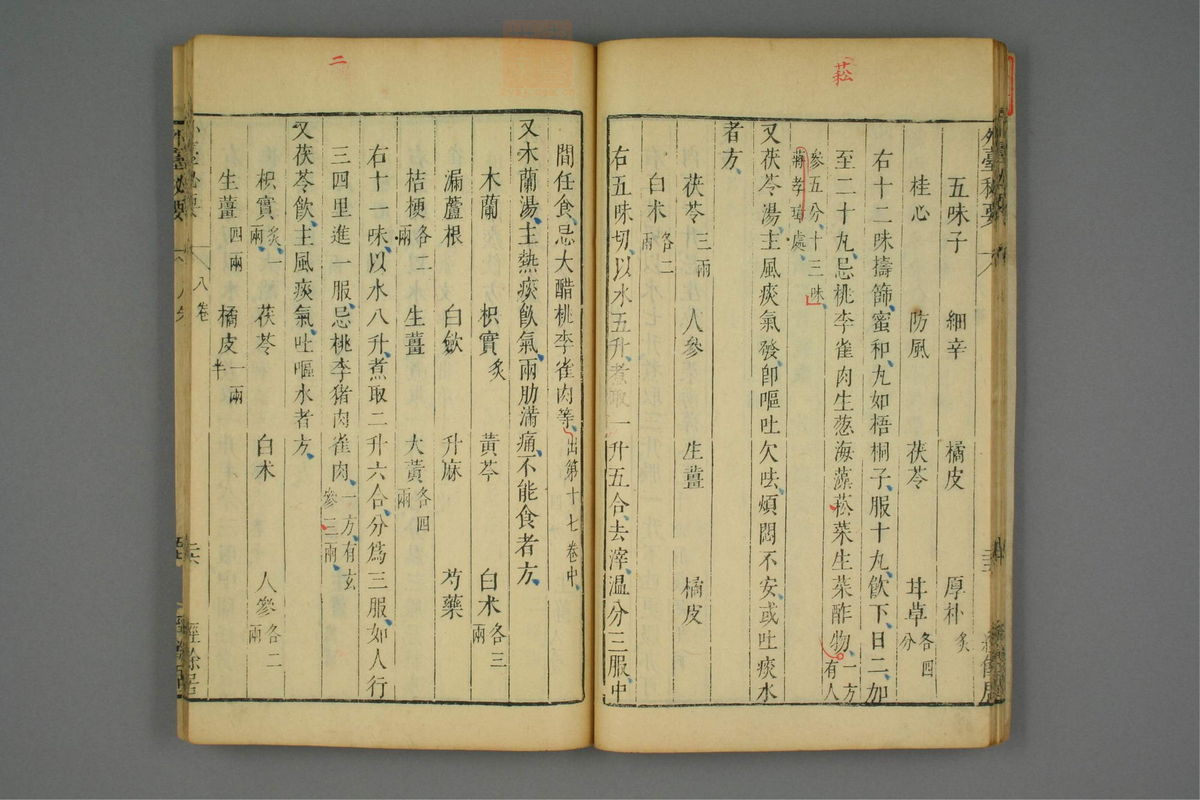 菘
外臺秘要
五味子 細辛 橘皮 厚朴炙
桂心 防風 茯苓 甘草各四分
右十二味擣篩蜜和丸如梧桐子服十丸飲下日二加
至二十丸忌桃李雀肉生葱海藻菘菜生菜酢物一方有人
參五分十三味蔣孝璋處
又茯苓湯主風痰氣發即嘔吐欠呿煩悶不安或吐痰水
者方
茯苓三兩 人參 生薑 橘皮
白术各二兩
右五味切以水五升煮取一升五合去滓温分三服中
二
間任食忌大醋桃李雀肉等出第十七卷中
又木蘭湯主熱痰飲氣兩肋滿痛不能食者方
木蘭 枳實炙 黃芩 白术各三兩
漏蘆根 白歛 升麻 芍藥
桔梗各二兩 生薑 大黃各四兩
右十一味以水八升煮取二升六合分爲三服如人行
三四里進一服忌桃李猪肉雀肉一方有玄參三兩
又茯苓飲主風痰氣吐嘔水者方
枳實炙一兩 茯苓 白术 人參各二兩
生薑四兩 橘皮一兩半
八卷
經餘居